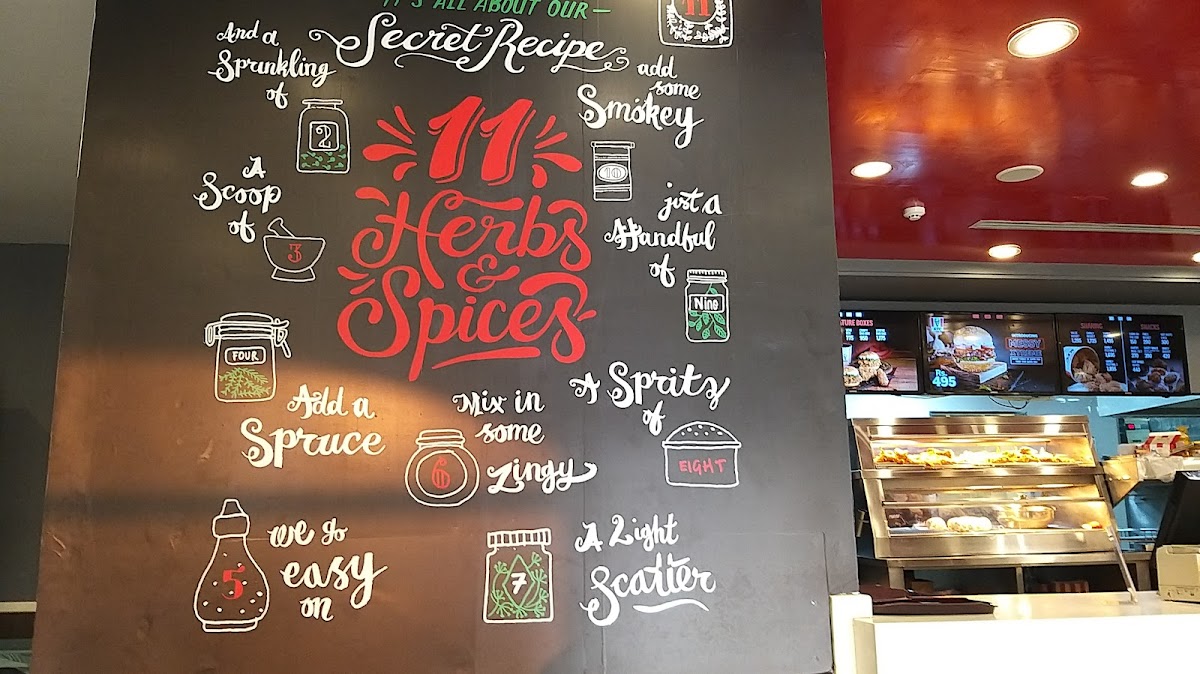 IT'S ALL ABOUT OUR—
Secret Recipe
11
And a
Sprinkling
of
2
add
some
Smokey
10
11
Herbs
&
Spices
A
Scoop
of
3
just a
Handful
of
Nine
FOUR
Add a
Spruce
Mix in
some
Zingy
6
A Spritz
of
EIGHT
5
we go
easy
on
7
A Light
Scatter
TURE BOXES
Rs.
495
SHARING
SNACKS